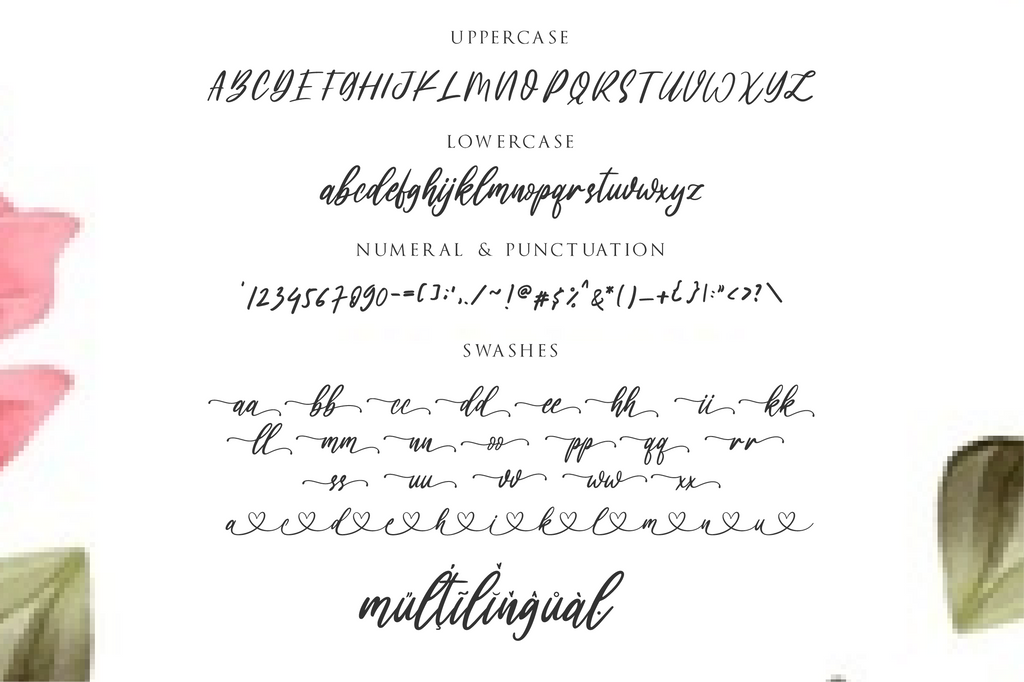 UPPERCASE
ABCDEFGHIJKLMNOPQRSTUVWXYZ
LOWERCASE
abcdefghijklmnopqrstuvwxyz
NUMERAL & PUNCTUATION
'1234567890-=[];',./~!@#$%^&*()_+{}|:"<>?\
SWASHES
aa bb cc dd ee hh ii kk
ll mm nn oo pp qq rr
ss uu vv ww xx
a♡c♡d♡e♡h♡i♡k♡l♡m♡n♡u♡
müļťĩlǐňĝůàŀ